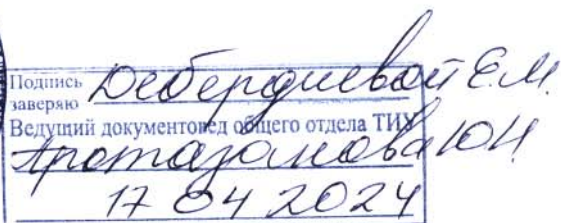 Подпись
заверяю Дебердиевой Е.М.
Ведущий документовед общего отдела ТИУ
Протазанова ЮН
17 04 2024